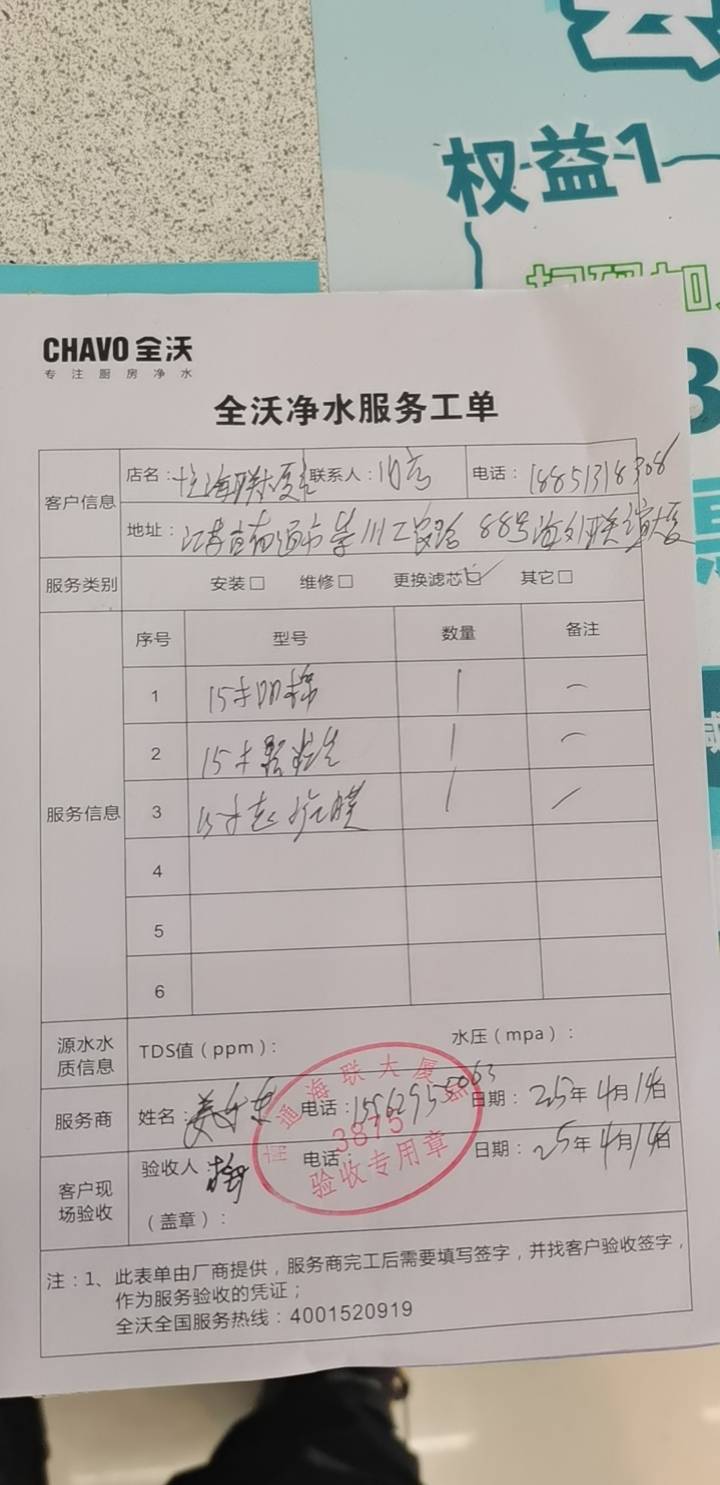 权益1
CHAVO 全沃
专注厨房净水
全沃净水服务工单
客户信息
店名： 海联大厦店 联系人：店 电话：18851318308
地址：江苏省南通市崇川工农路88号海外联谊大厦
服务类别 安装□ 维修□ 更换滤芯☑ 其它□
服务信息
序号 型号 数量 备注
1 15寸PP棉 1 —
2 15寸颗粒炭 1 —
3 15寸超滤膜 1 —
4
5
6
源水水质信息 TDS值（ppm）： 水压（mpa）：
服务商 姓名：姜 电话： 日期：25年4月14日
客户现场验收 验收人： 电话： 日期：25年4月14日
（盖章）：
通海联大厦店
3875
验收专用章
注：1、此表单由厂商提供，服务商完工后需要填写签字，并找客户验收签字，
作为服务验收的凭证；
全沃全国服务热线：4001520919